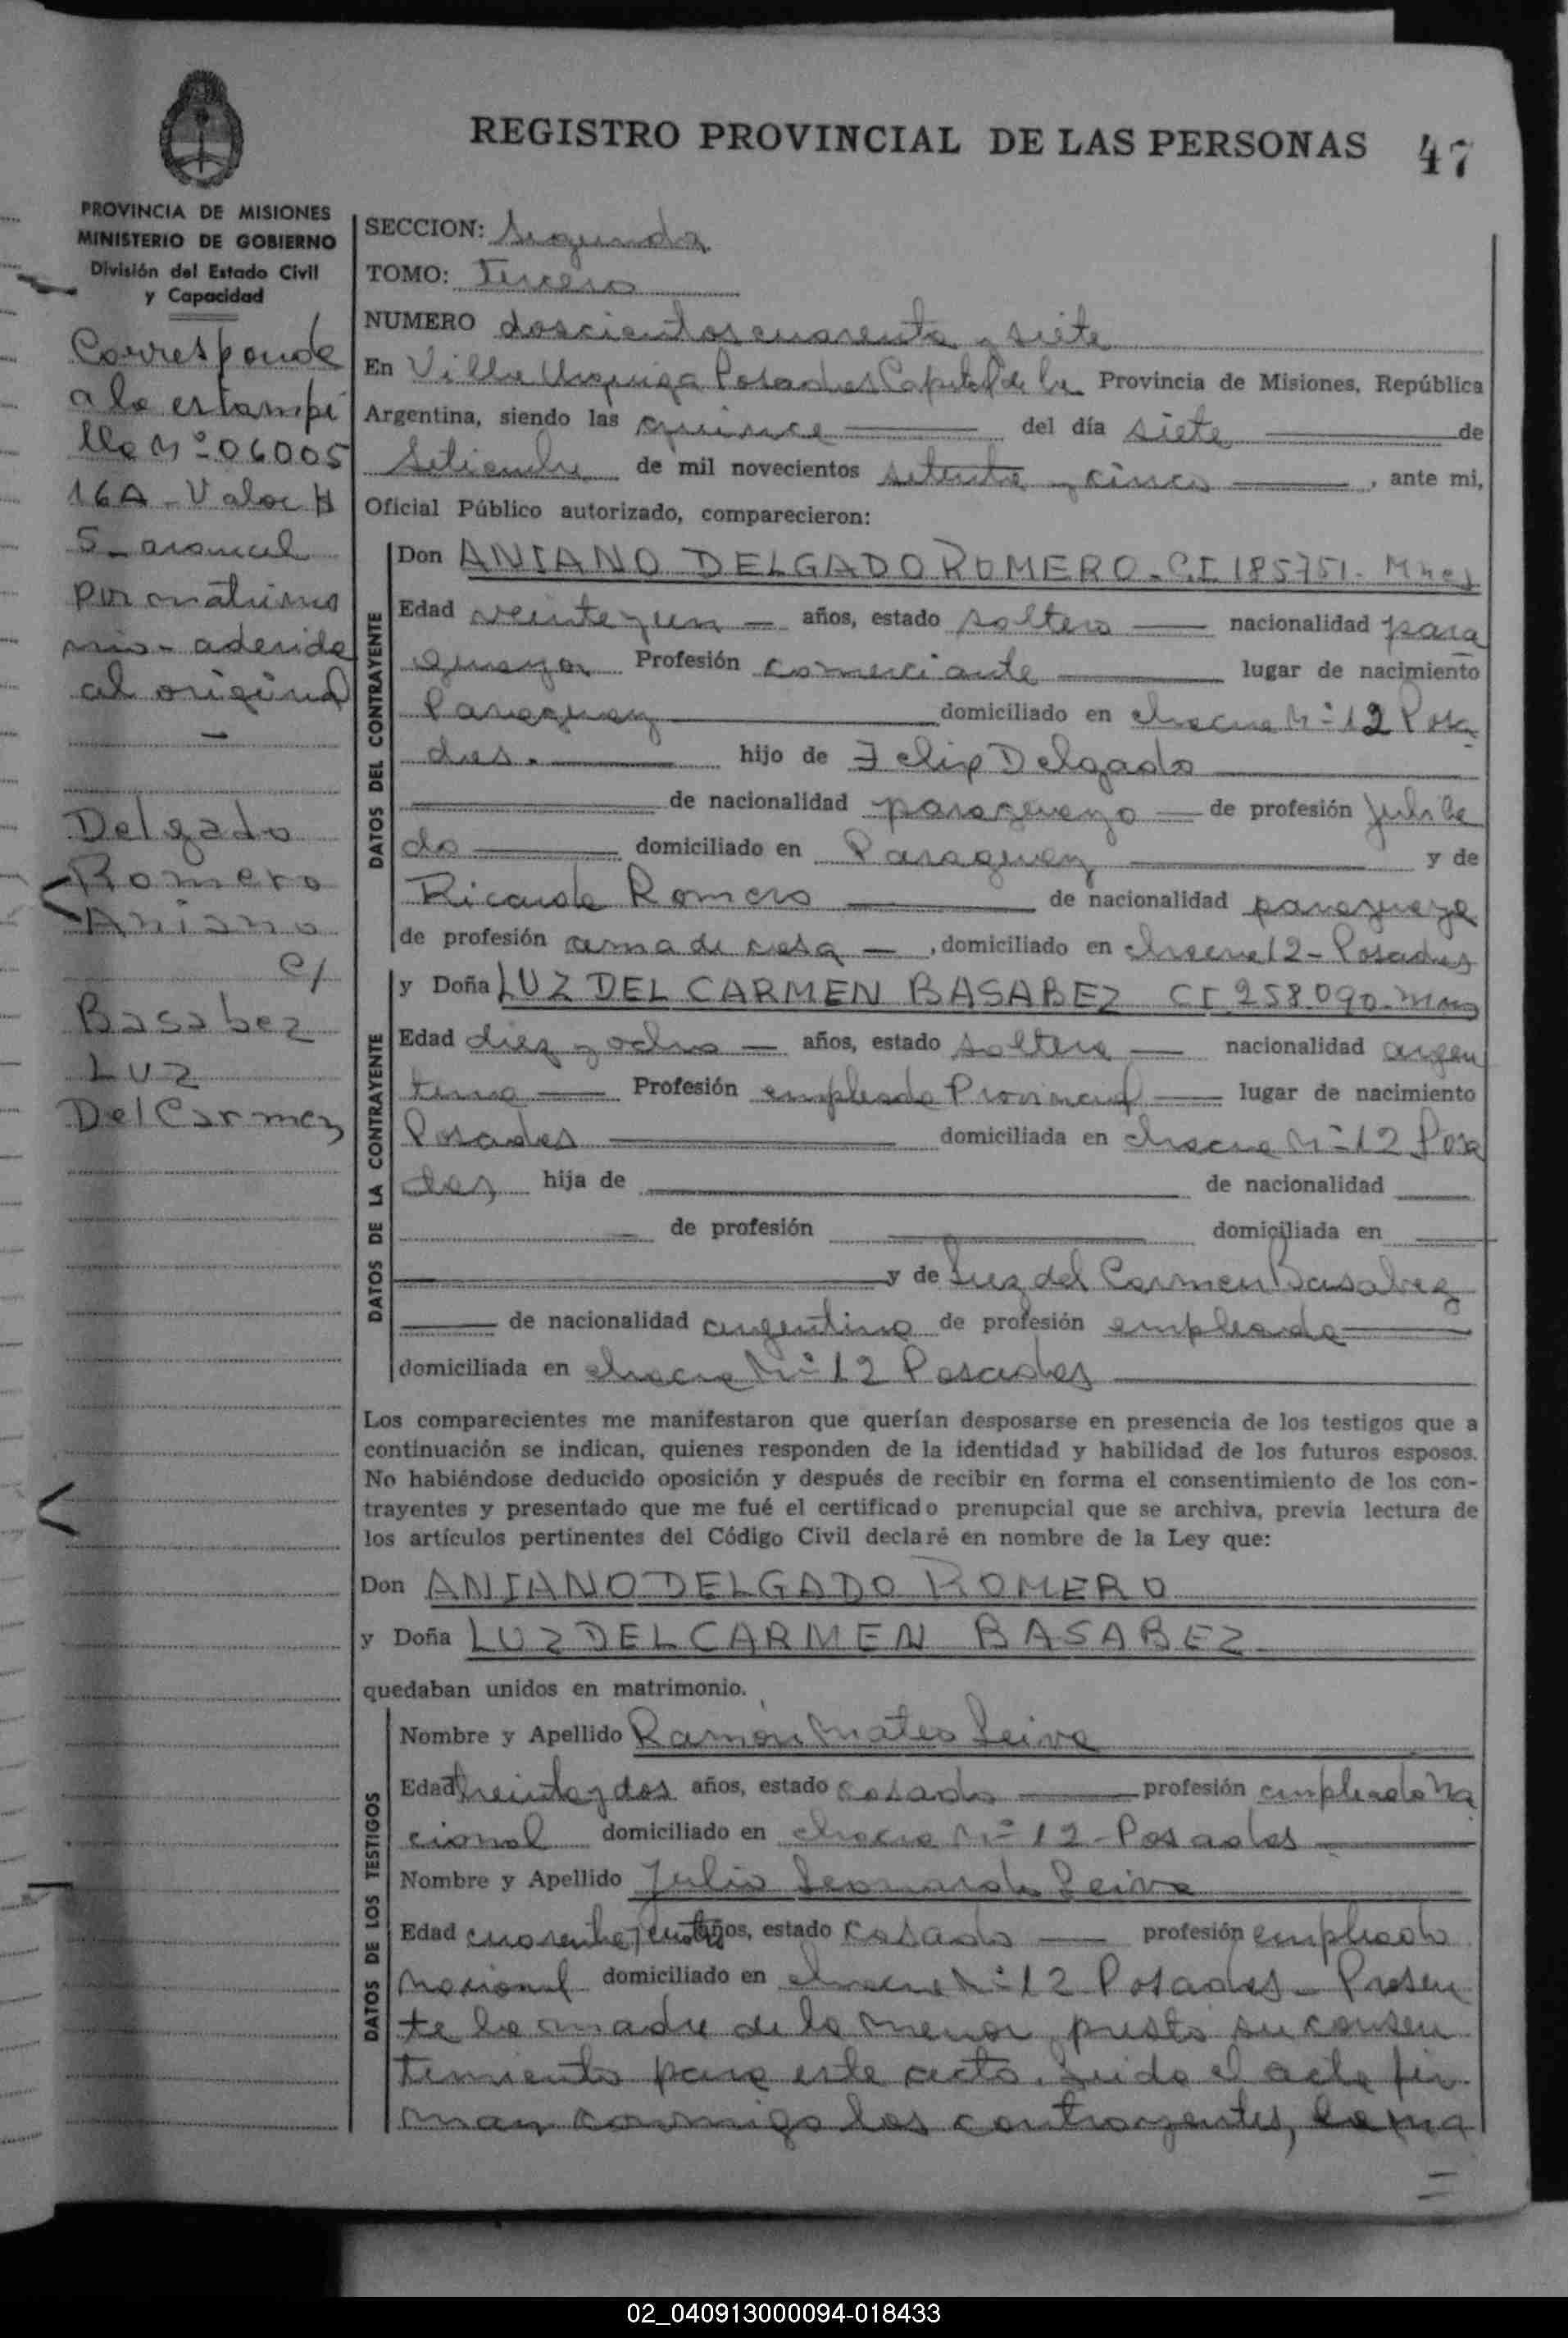 REGISTRO PROVINCIAL DE LAS PERSONAS 47
PROVINCIA DE MISIONES
MINISTERIO DE GOBIERNO
División del Estado Civil
y Capacidad
Corresponde
a la estampi
lla Nº 06005
16A - Valor $
5 - arancel
por matrimo
nio - aderida
al original
Delgado
Romero
Aniano
c/
Basabez
Luz
Del Carmen
SECCION: Segunda
TOMO: Tercero
NUMERO doscientos cuarenta y siete
En Villa Urquiza Posadas Capital de la Provincia de Misiones, República
Argentina, siendo las quince del día siete de
Setiembre de mil novecientos setenta y cinco, ante mi,
Oficial Público autorizado, comparecieron:
DATOS DEL CONTRAYENTE
Don ANIANO DELGADO ROMERO - C.I 185751 - Mnes
Edad veinte y un años, estado soltero nacionalidad para
guayo Profesión comerciante lugar de nacimiento
Paraguay domiciliado en chacra Nº 12 Posa
das. hijo de Felip Delgado
de nacionalidad paraguayo de profesión jubila
do domiciliado en Paraguay y de
Ricarda Romero de nacionalidad paraguaya
de profesión ama de casa, domiciliado en chacra 12 - Posadas
DATOS DE LA CONTRAYENTE
y Doña LUZ DEL CARMEN BASABEZ CI 258.090 - Mnes
Edad diez y ocho años, estado soltera nacionalidad argen
tina Profesión empleada Provincial lugar de nacimiento
Posadas domiciliada en chacra Nº 12 Posa
das hija de de nacionalidad
de profesión domiciliada en
y de Luz del Carmen Basabez
de nacionalidad argentina de profesión empleada
domiciliada en chacra Nº 12 Posadas
Los comparecientes me manifestaron que querían desposarse en presencia de los testigos que a
continuación se indican, quienes responden de la identidad y habilidad de los futuros esposos.
No habiéndose deducido oposición y después de recibir en forma el consentimiento de los con-
trayentes y presentado que me fué el certificado prenupcial que se archiva, previa lectura de
los artículos pertinentes del Código Civil declaré en nombre de la Ley que:
Don ANIANO DELGADO ROMERO
y Doña LUZ DEL CARMEN BASABEZ
quedaban unidos en matrimonio.
DATOS DE LOS TESTIGOS
Nombre y Apellido Ramón Mateo Leiva
Edad treinta y dos años, estado casado profesión empleado Na
cional domiciliado en chacra Nº 12 - Posadas
Nombre y Apellido Julio Leonardo Leiva
Edad cuarenta y cuatro años, estado casado profesión empleado
nacional domiciliado en chacra Nº 12 Posadas - Presen
te la madre de la menor, presta su consen
timiento para este acto. Leida el acta fir
man conmigo los contrayentes, la ma
02_040913000094-018433